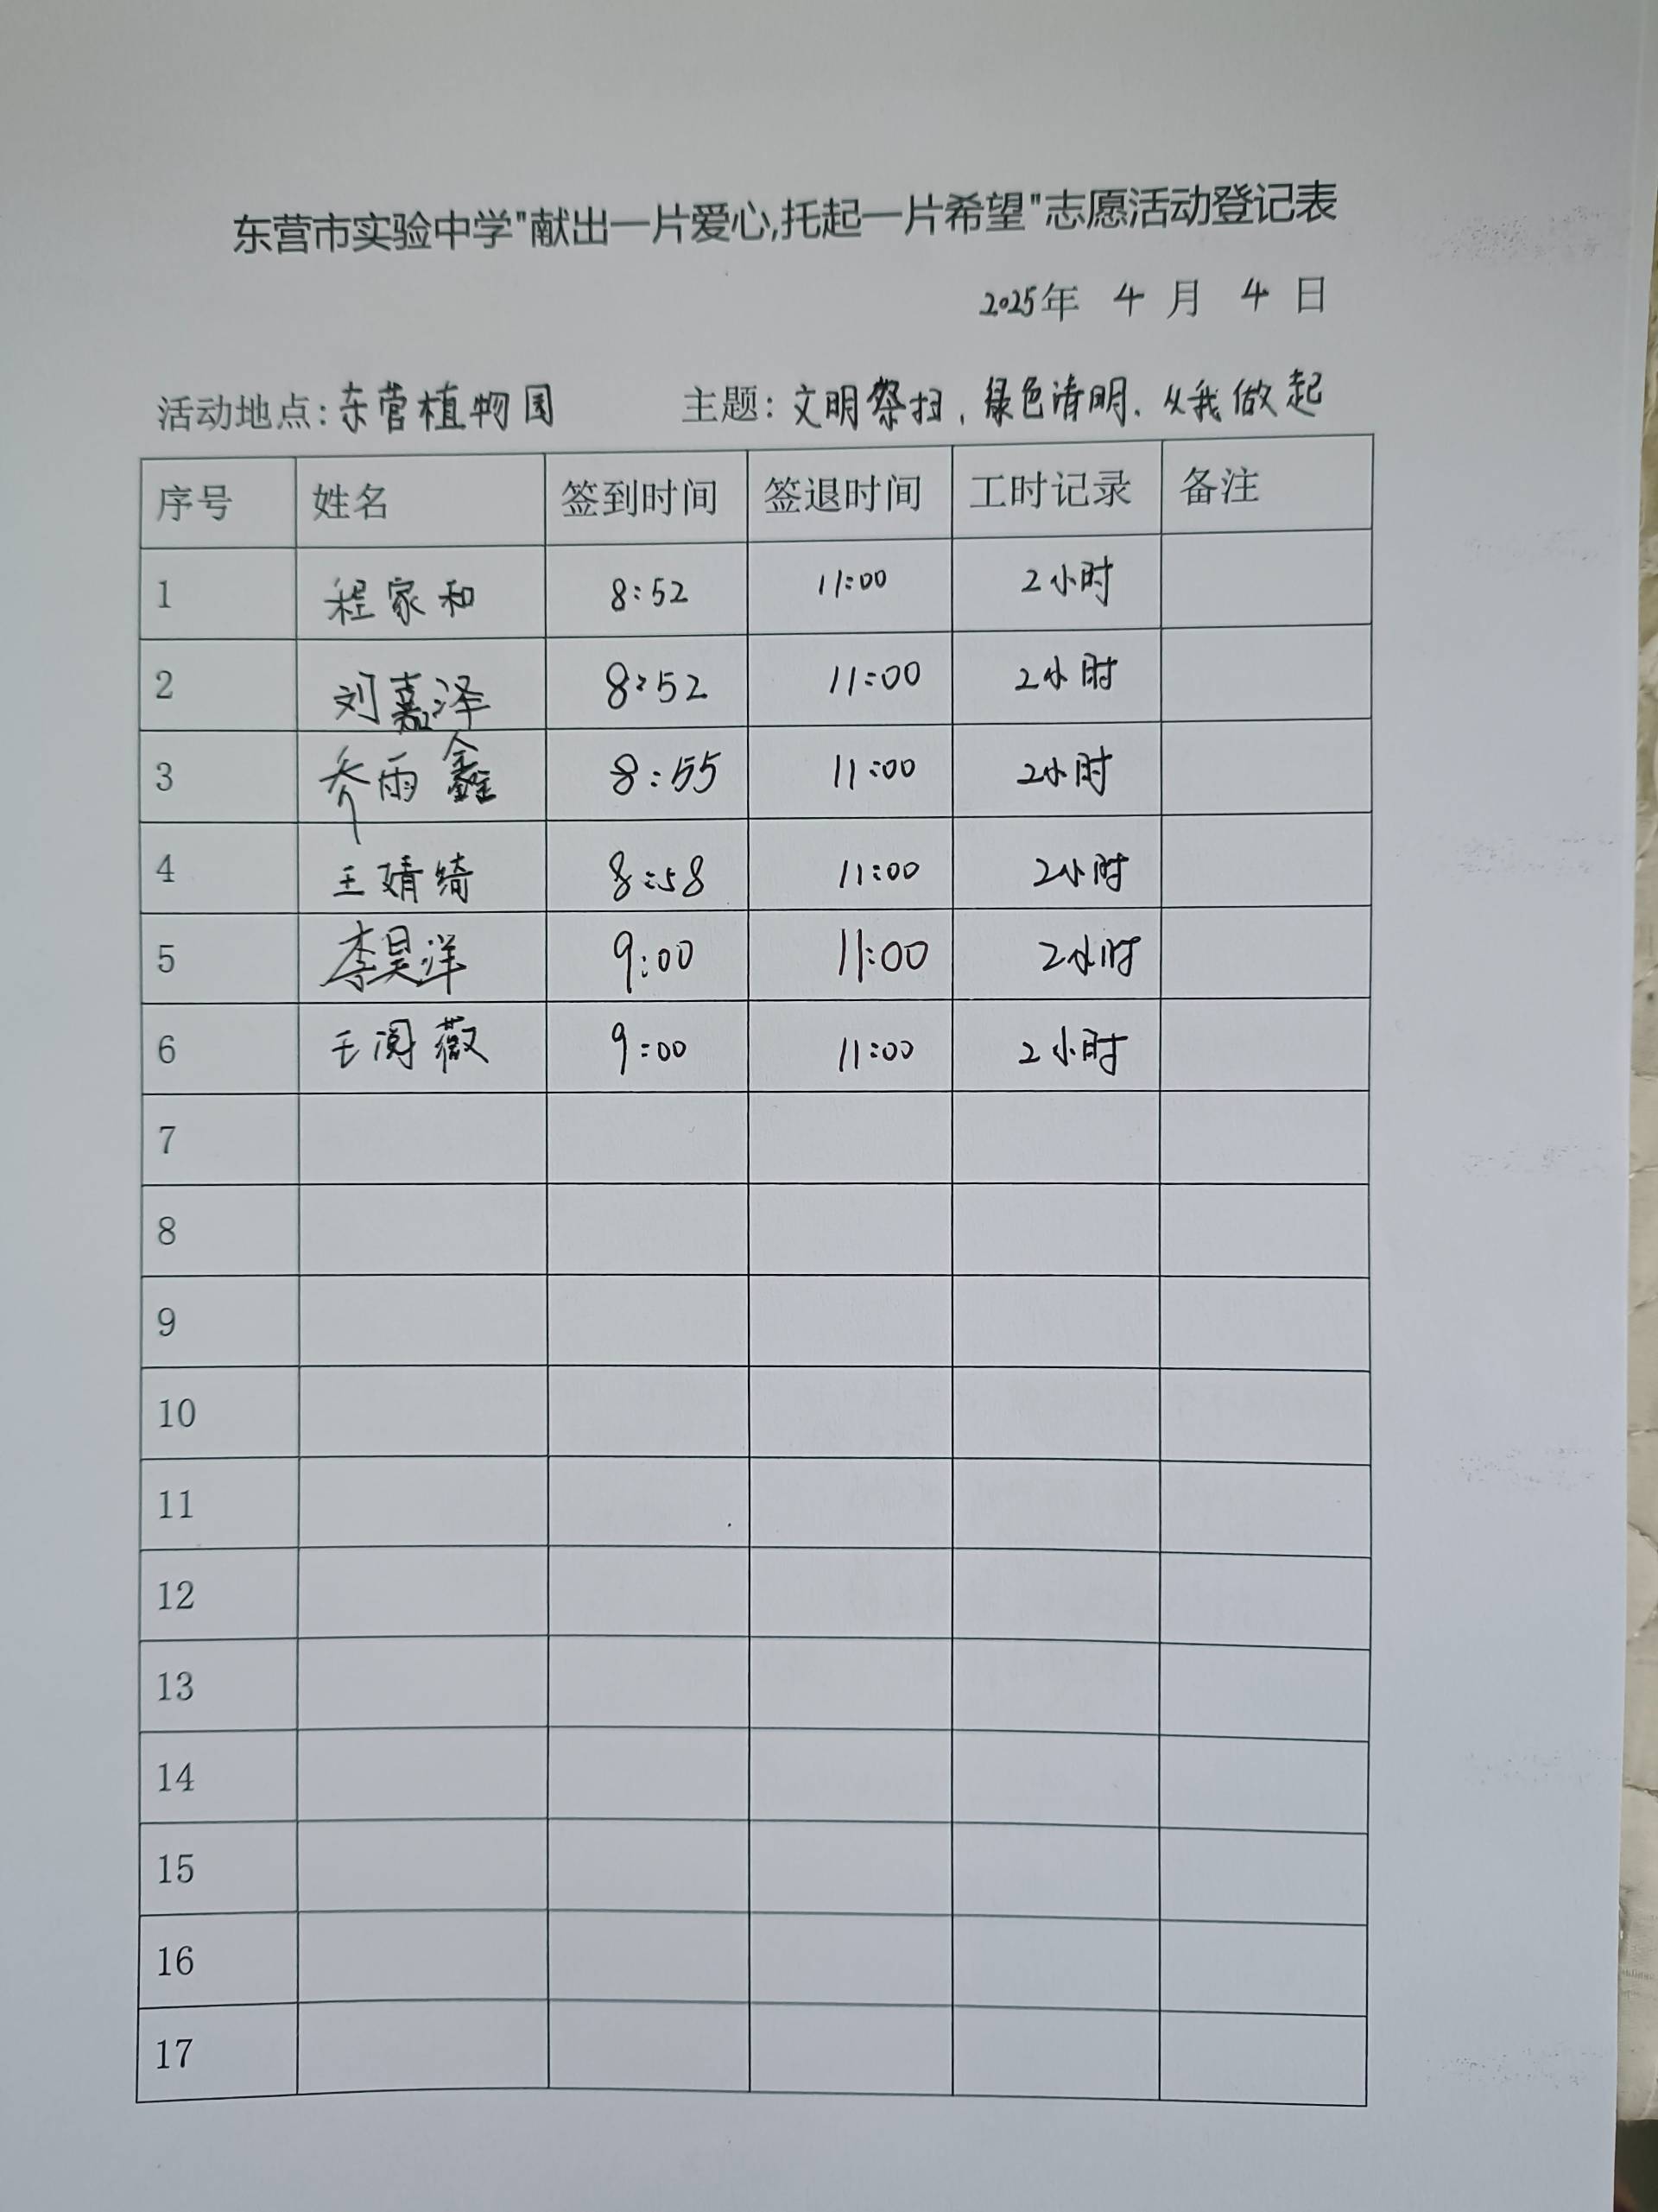 东营市实验中学"献出一片爱心,托起一片希望"志愿活动登记表
2025年 4 月 4 日
活动地点: 东营植物园 主题: 文明祭扫,绿色清明,从我做起
序号 姓名 签到时间 签退时间 工时记录 备注
1 程家和 8:52 11:00 2小时
2 刘嘉泽 8:52 11:00 2小时
3 乔雨鑫 8:55 11:00 2小时
4 王婧绮 8:58 11:00 2小时
5 李昊洋 9:00 11:00 2小时
6 9:00 11:00 2小时
7
8
9
10
11
12
13
14
15
16
17